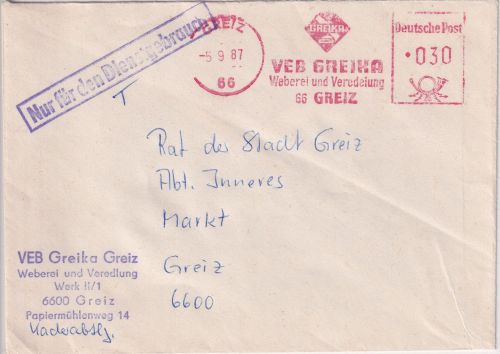 Nur für den Dienstgebrauch
GREIZ
-5.9.87
66
GREIKA
VEB GREIKA
Weberei und Veredelung
66 GREIZ
Deutsche Post
030
T
Rat der Stadt Greiz
Abt. Inneres
Markt
Greiz
6600
VEB Greika Greiz
Weberei und Veredlung
Werk II/1
6600 Greiz
Papiermühlenweg 14
Kaderabtlg.